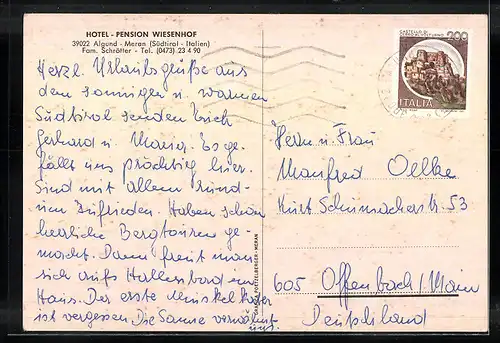 HOTEL - PENSION WIESENHOF
39022 Algund - Meran (Südtirol - Italien)
Fam. Schrötter - Tel. (0473) 23 4 90
Herzl. Urlaubsgrüße aus
dem sonnigen u. warmen
Südtirol senden Euch
Gerhard u. Es ge-
fällt uns prächtig hier.
Sind mit allem rund-
um zufrieden. Haben schon
herrliche Bergtouren ge-
macht. Dann freut man
sich aufs Hallenbad im
Haus. Der erste Muskelkater
ist vergessen. Die Sonne verwöhnt
uns.
200
ITALIA
Herrn u. Frau
Manfred Oelke
Kurt Schumacherstr. 53
605 Offenbach/Main
Deutschland